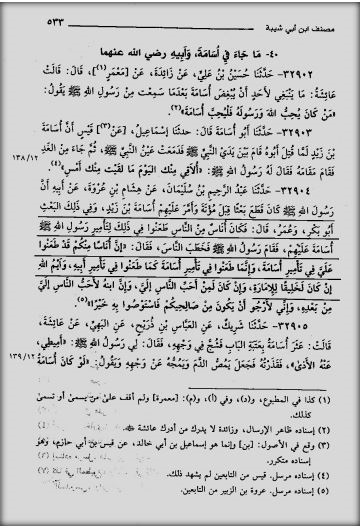 مصنف ابن أبي شيبة
٥٣٣
٤٠- مَا جَاءَ فِي أُسَامَةَ، وَأَبِيهِ رضي الله عنهما
٣٢٩٠٢- حَدَّثَنَا حُسَيْنُ بْنُ عَلِيٍّ، عَنْ زَائِدَةَ، عَنْ [مَعْمَرٍ](١)، قَالَ: قَالَتْ
عَائِشَةُ: مَا يَنْبَغِي لأَحَدٍ أَنْ يُبْغِضَ أُسَامَةَ بَعْدَمَا سَمِعْت مِنْ رَسُولِ اللهِ ﷺ يَقُولُ:
«مَنْ كَانَ يُحِبُّ اللهَ وَرَسُولَهُ فَلْيُحِبَّ أُسَامَةَ»(٢).
٣٢٩٠٣- حَدَّثَنَا أَبُو أُسَامَةَ قَالَ: حدثنا إسْمَاعِيلُ، [عَنْ](٣) قَيْسٍ أَنَّ أُسَامَةَ
بْنَ زَيْدٍ لَمَّا قُتِلَ أَبُوهُ قَامَ بَيْنَ يَدَيِ النَّبِيِّ ﷺ فَدَمَعَتْ عَيْنُ النَّبِيِّ ﷺ، ثُمَّ جَاءَ مِنَ الْغَدِ
فَقَامَ مَقَامَهُ فَقَالَ لَهُ رَسُولُ اللهِ ﷺ: «أُلاَقِي مِنْك الْيَوْمَ مَا لَقِيْت مِنْك أَمْسِ»(٤).
١٣٨/١٢
٣٢٩٠٤- حَدَّثَنَا عَبْدُ الرَّحِيمِ بْنُ سُلَيْمَانَ، عَنْ هِشَامِ بْنِ عُرْوَةَ، عَنْ أَبِيهِ أَنَّ
رَسُولَ اللهِ ﷺ كَانَ قَطَعَ بَعْثًا قِبَلَ مُؤْتَةَ وَأَمَّرَ عَلَيْهِمْ أُسَامَةَ بْنَ زَيْدٍ، وَفِي ذَلِكَ الْبَعْثِ
أَبُو بَكْرٍ، وَعُمَرُ، قَالَ: فَكَانَ أُنَاسٌ مِنَ النَّاسِ يَطْعَنُونَ فِي ذَلِكَ لِتَأْمِيرِ رَسُولِ اللهِ ﷺ
أُسَامَةَ عَلَيْهِمْ، فَقَامَ رَسُولُ اللهِ ﷺ فَخَطَبَ النَّاسَ، فَقَالَ: «إنَّ أُنَاسًا مِنْكُمْ قَدْ طَعَنُوا
عَلَيَّ فِي تَأْمِيرِ أُسَامَةَ، وَإِنَّمَا طَعَنُوا فِي تَأْمِيرِ أُسَامَةَ كَمَا طَعَنُوا فِي تَأْمِيرِ أَبِيهِ، وَايْمُ اللهِ
إنْ كَانَ لَخَلِيقًا لِلإِمَارَةِ، وَإِنْ كَانَ لَمِنْ أَحَبِّ النَّاسِ إلَيَّ، وَإِنَّ ابْنَهُ لأَحَبُّ النَّاسِ إلَيَّ
مِنْ بَعْدِهِ، وَإِنِّي لأَرْجُو أَنْ يَكُونَ مِنْ صَالِحِيكُمْ فَاسْتَوْصُوا بِهِ خَيْرًا»(٥).
٣٢٩٠٥- حَدَّثَنَا شَرِيكٌ، عَنِ الْعَبَّاسِ بْنِ ذُرَيْحٍ، عَنِ الْبَهِيِّ، عَنْ عَائِشَةَ،
قَالَتْ: عَثَرَ أُسَامَةُ بِعَتَبَةِ الْبَابِ فَشُجَّ فِي وَجْهِهِ، فَقَالَ: لِي رَسُولُ اللهِ ﷺ: «أَمِيطِي،
عَنْهُ الأَذَىٰ»، فَقَذَرْتُهُ فَجَعَلَ يَمُصُّ الدَّمَ وَيَمُجُّهُ عَنْ وَجْهِهِ وَيَقُولُ: «لَوْ كَانَ أُسَامَةُ
١٣٩/١٢
(١) كذا في المطبوع، و(د)، وفي (أ)، و(م): [معمرة] ولم أقف على من يسمى أو تسمى
كذلك.
(٢) إسناده ظاهر الإرسال، وزائدة لا يدرك من أدرك عائشة
(٣) وقع في الأصول: [بن] وإنما هو إسماعيل بن أبي خالد، عن قيس بن أبي حازم، وهو
إسناد متكرر.
(٤) إسناده مرسل. قيس من التابعين لم يشهد ذلك.
(٥) إسناده مرسل. عروة بن الزبير من التابعين.